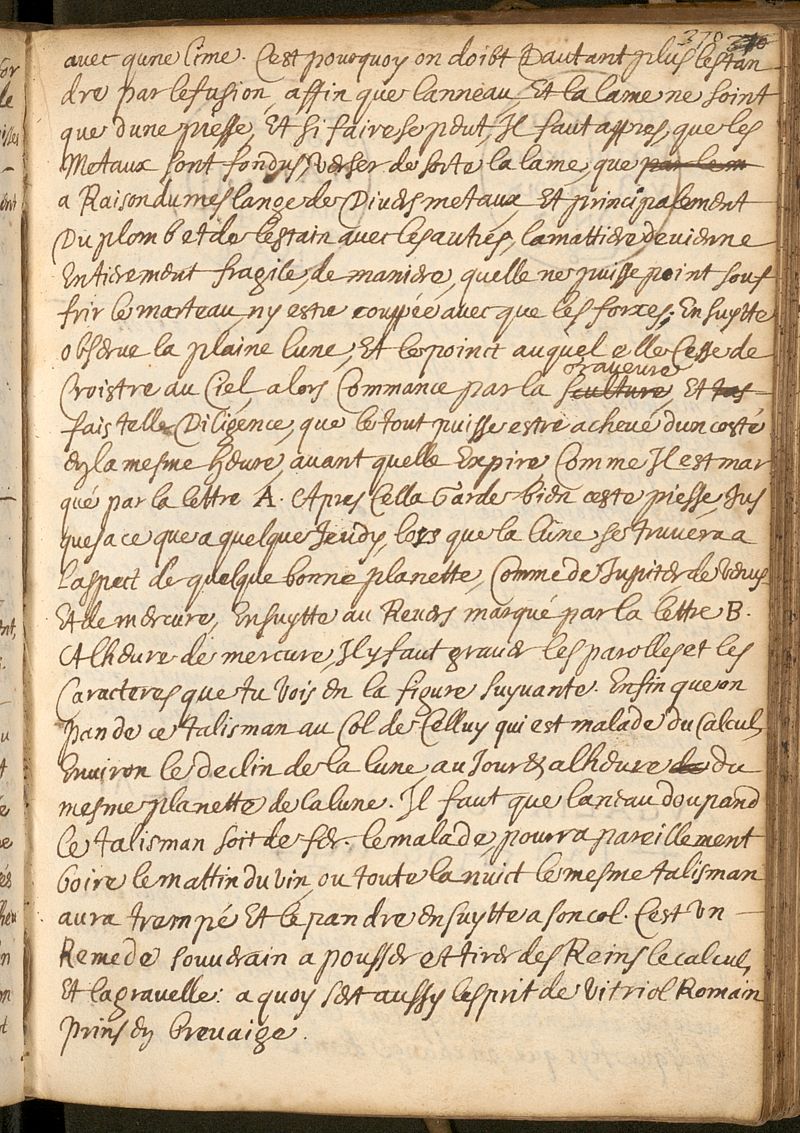 378
avec qune lime. C'est pourquoy on doibt d'autant plus lestan
dre par lefusion, affin que lanneau, Et la lame ne soint
que dune piesse, Et si faire se peut, Il faut appres, que les
Metaux sont fondus, verser de sorte la lame, que par le m
a Raison du meslange de Divers metaux Et principalement
Du plomb et de lestain avec les autres, la mattiere devienne
Entierement fragile, de maniere, quelle ne puisse point souf
frir le marteau ny estre couppée avec que les forces; Ensuytte
observe la plaine lune, Et le poinct auquel elle Cesse de
graveure
Croistre au Ciel, alors Commance par la sculture, Et tas
fais telle Diligence, que le tout puisse estre achevé dun costé
en la mesme heure, avant quelle Expire Comme Il est mar
qué par la lettre A. Apres Cella Garde bien ceste piesse Jus
ques a ce que a quelque Jeudy, lors que la lune se truvera a
Laspect de quelque bonne planette, Comme de Jupiter de venus
Et de mercure, Ensuytte au Revers marqué par la lettre B.
A lheure de mercure, Il y faut graver les parolles et les
Caracteres que tu vois en la figure suyvante. Enfin que on
pande ce talisman au Col de Celluy qui est malade du Calcul,
Environ le declin de la lune, au Jour & a lheure de du
mesme planette de la lune. Il faut que laneau dou pand
Ce talisman soit de fer. le malade pourra pareillement
boire le mattin du vin, ou toute la nuict le mesme talisman
aura trempé Et le pandre ensuytte a son col. C'est un
Remede souverain a pousser et tirer des Reins le calcul,
Et la gravelle: a quoy sert aussy lesprit de vitriol Romain
prins en brevaige.